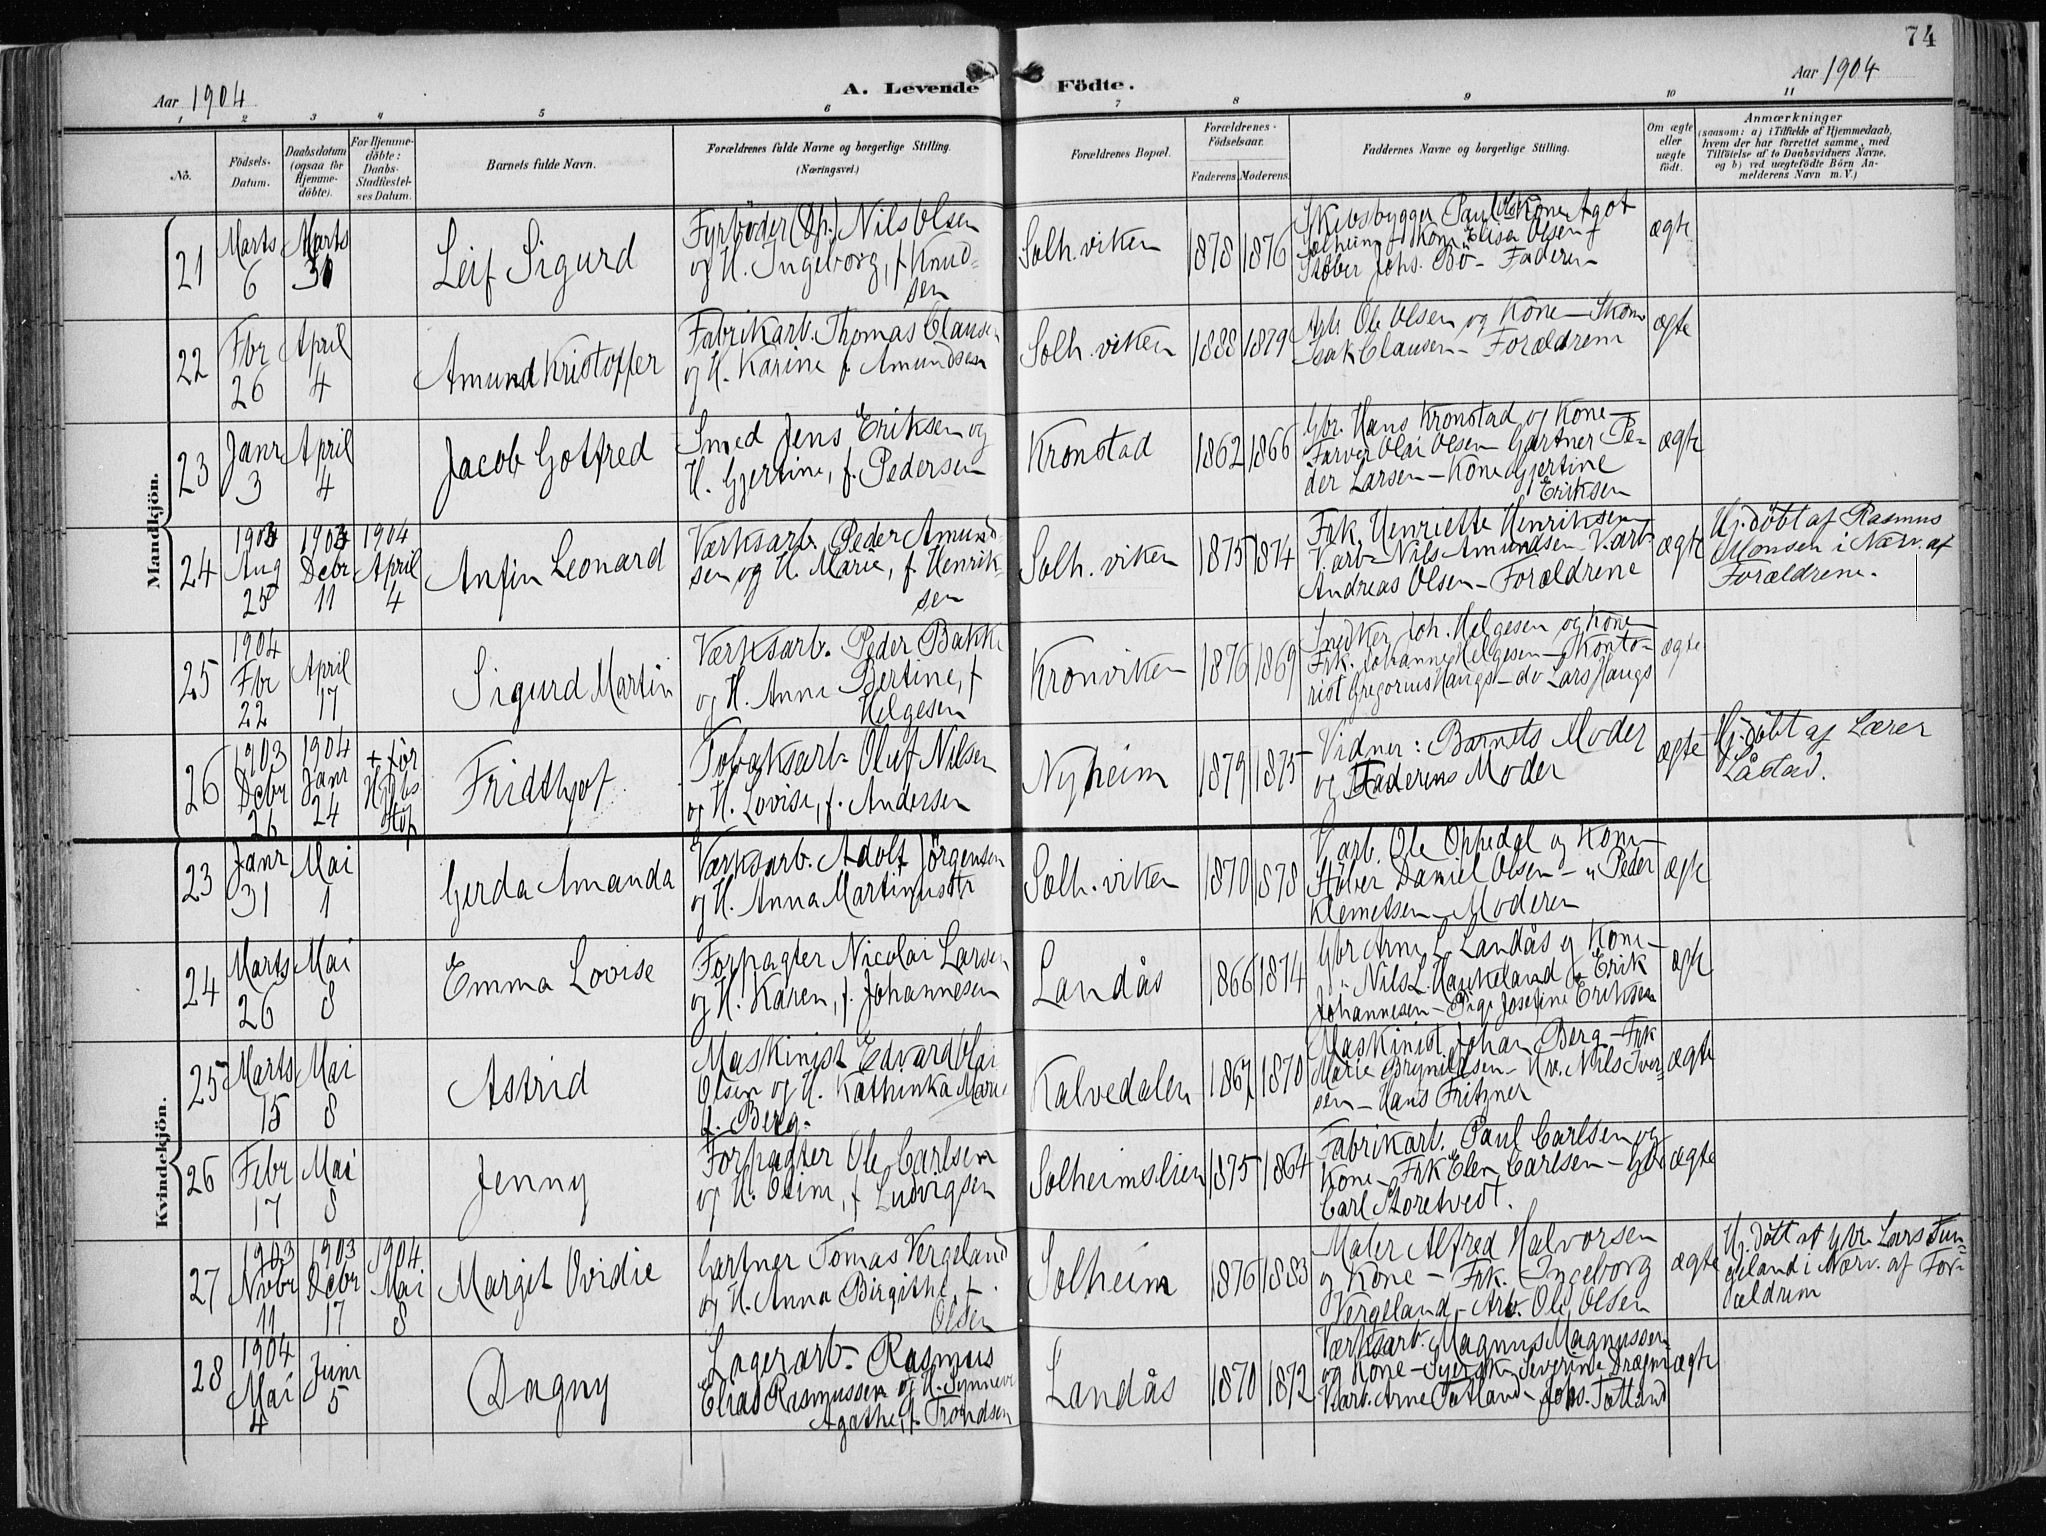 74
Aar 1904
A. Levende Födte.
Aar 1904
1 2 3 4 5 6 7 8 9 10 11
No.
Födsels-
Datum.
Daabsdatum
(ogsaa for
Hjemme-
döbte).
For Hjemme-
döbte:
Daabs-
Stadfæstel-
ses Datum.
Barnets fulde Navn.
Forældrenes fulde Navne og borgerlige Stilling.
(Næringsvei.)
Forældrenes Bopæl.
Forældrenes
Födselsaar.
Faderens. Moderens.
Faddernes Navne og borgerlige Stilling.
Om ægte
eller
uægte
født.
Anmærkninger
(saasom: a) i Tilfælde af Hjemmedaab,
hvem der har forrettet samme, med
Tilföielse af to Daabsvidners Navne,
og b) ved uægtefödte Börn An-
melderens Navn m. V.)
Mandkjön.
21
Marts
6
Marts
31
Leif Sigurd
Fyrböder (Dp.) Nils Olsen
og H. Ingeborg, f. Knud-
sen
Solh. viken
1878 1876
Skibsbygger Paul Kone Agot
Solheim Kone Elisa Olsen
Støber Johs. Bö - Faderen
ægte
22
Fbr
26
April
4
Amund Kristoffer
Fabrikarb. Thomas Clausen
og H. Karine f. Amundsen
Solh. viken
1888 1879
Arb. Ole Olsen og Kone - Skom.
Isak Clausen - Forældrene
ægte
23
Janr
3
April
4
Jacob Gotfred
Smed Jens Eriksen og
H. Gjertine, f. Pedersen
Kronstad
1862 1866
Gbr. Hans Kronstad og Kone -
Farver Olai Olsen Gartner Pe-
der Larsen - Kone Gjertine
Eriksen
ægte
24
1903
Aug
25
1903
Dcbr
11
1904
April
4
Anfin Leonard
Værksarb. Peder Amund
sen og H. Marie, f. Henrik-
sen
Solh. viken
1875 1874
Frk. Henriette Henriksen
V. arb - Nils Amundsen V. arb.
Andreas Olsen - Forældrene
ægte
Hj. döbt af Rasmus
Monsen i Nærv. af
Forældrene.
25
1904
Fbr
22
April
17
Sigurd Martin
Værksarb. Peder Bakke
og H. Anna Bertine, f
Helgesen
Kronviken
1876 1869
Snedker Joh. Helgesen og Kone
Frk. Johanne Helgesen - Konto-
rist Gregorius Haugs - do Lars Haugs
ægte
26
1903
Dcbr
26
1904
Janr
24
+ för
Hj.dbs
Stdf
Fridthjof
Tobaksarb. Oluf Nilsen
og H. Lovise, f. Andersen
Nyheim
1879 1875
Vidner: Barnets Moder
og Faderens Moder
ægte
Hj. döbt af Lærer
Låstad.
Kvindekjön.
23
Janr
31
Mai
1
Gerda Amanda
Værksarb. Adolf Jörgensen
og H. Anna Martinusdtr
Solh. viken
1870 1878
V. arb. Ole Oppedal og Kone -
Støber Daniel Olsen - " Peder
Klemetsen - Moderen
ægte
24
Marts
26
Mai
8
Emma Lovise
Forpagter Nicolai Larsen
og H. Karen, f. Johannesen
Landås
1866 1874
Gbr Arne L. Landås og Kone -
" Nils L. Haukeland Erik
Johannesen - Pige Josefine Eriksen
ægte
25
Marts
15
Mai
8
Astrid
Maskinist Edvard Olai
Olsen og H. Kathinka Marie
f. Berg.
Kalvedalen
1867 1870
Maskinist Johan Berg - Frk
Marie Brynildsen - Kv. Nils Iver-
sen - Hans Fritzner
ægte
26
Febr
17
Mai
8
Jenny
Forpagter Ole Carlsen
og H. Oline, f Ludvigsen
Solheimslien
1875 1864
Fabrikarb. Paul Carlsen og
Kone - Frk Elen Carlsen - Gbr
Carl Storetvedt.
ægte
27
1903
Nvbr
11
1903
Dcbr
17
1904
Mai
8
Margit Ovidie
Gartner Tomas Vergeland
og H. Anna Birgithe, f.
Olsen
Solheim
1876 1883
Maler Alfred Halvorsen
og Kone - Frk. Ingeborg
Vergeland - Arb. Ole Olsen
ægte
Hj. döbt af Gbr. Lars Tun-
geland i Nærv. af For-
ældrene
28
1904
Mai
4
Juni
5
Dagny
Lagerarb. Rasmus
Elias Rasmussen og H. Synneve
Agathe, f. Trondsen
Landås
1870 1872
Værksarb. Magnus Magnussen
og Kone - Syersk. Severine Drægni
V. arb. Arne Tatland - Johs. Tatland
ægte